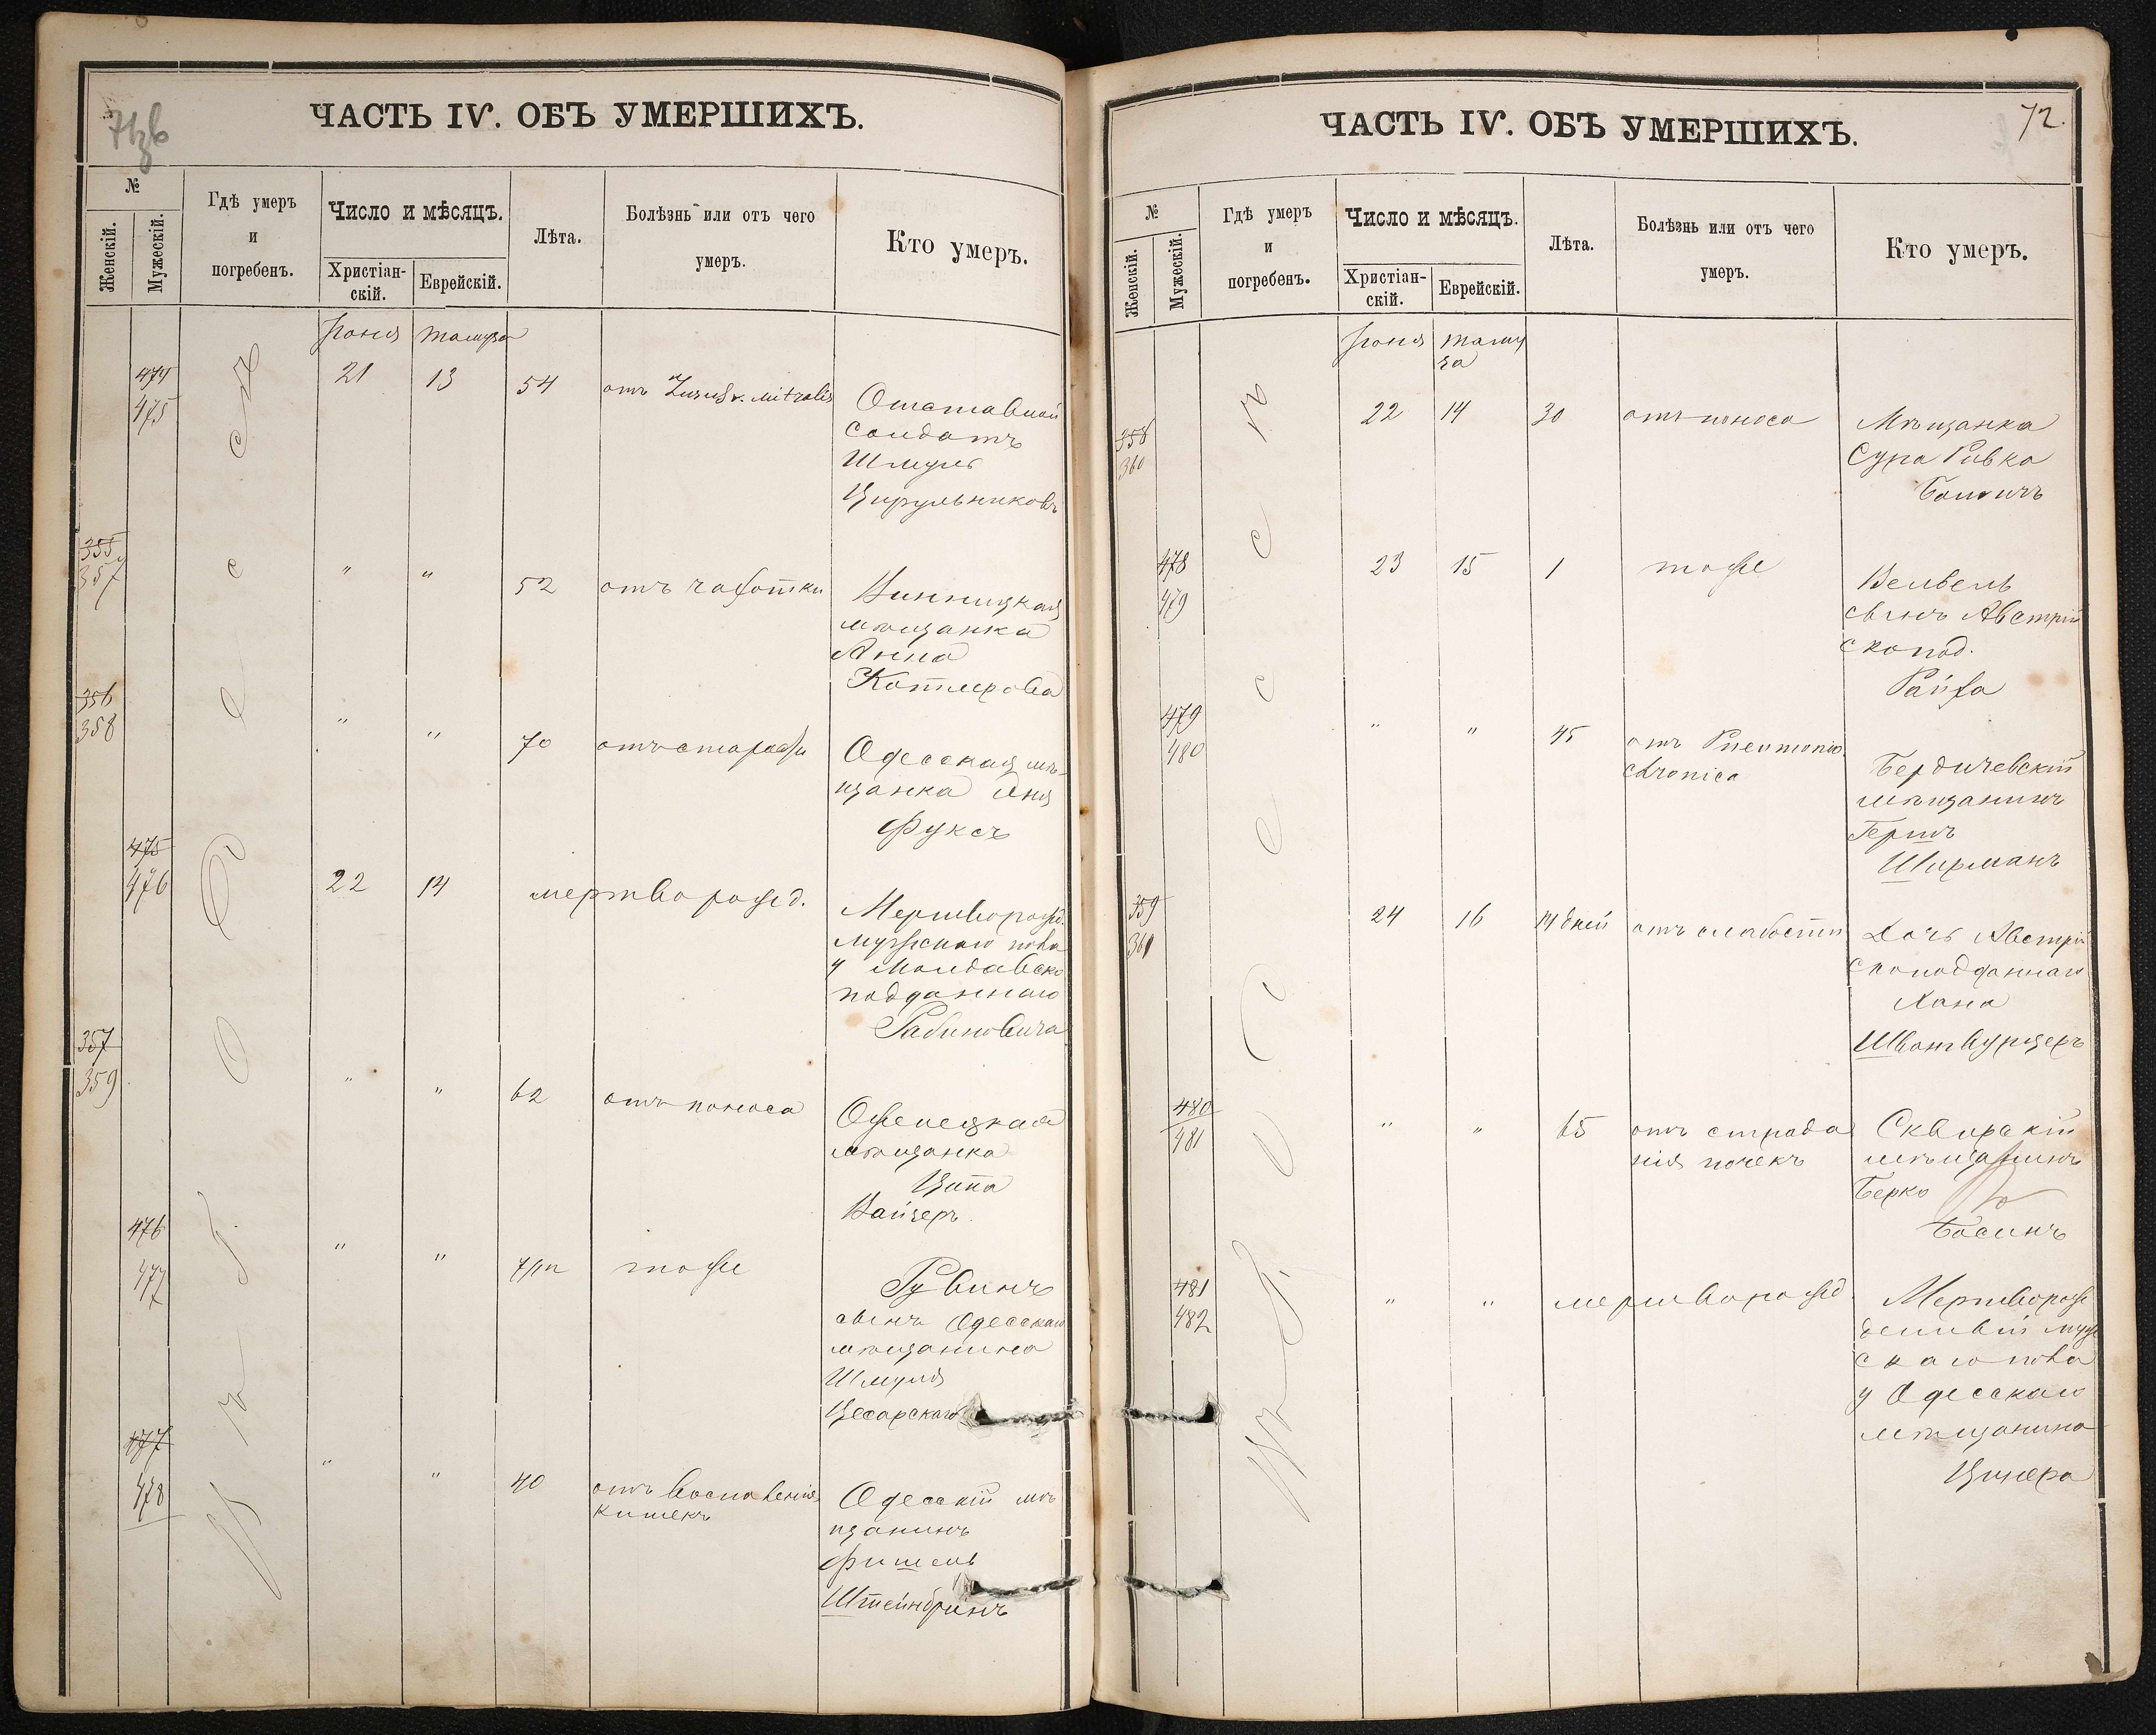 ЧАСТЬ IV. ОБЪ УМЕРШИХЪ.
№
Женскій.
Мужескій.
Гдѣ умеръ
и
погребенъ.
Число и мѣсяцъ.
Христіан-
скій.
Еврейскій.
Лѣта.
Болѣзнь или отъ чего
умеръ.
Кто умеръ.
Іюня Тамуза
474
475
21 13 54 отъ mitralis
Отставной
солдатъ
Шмуль
Цирульниковъ
355
357
" " 52 отъ чахотки
Винницкая
мѣщанка
Анна
Котлярова
356
358
" " 70 отъ старости
Одесская мѣ-
щанка
Фуксъ
475
476
22 14 мертворожд.
Мертворожд.
мужескаго пола
у Молдавско
подданнаго
Рабиновича
357
359
" " 62 отъ поноса
мѣщанка
Ципа
Вайзеръ
476
477
" " тоже
Рувинъ
сынъ Одесскаго
мѣщанина
Шмуля
Цесарскаго
477
478
" " 40 отъ воспаленія
кишекъ
Одесскій мѣ
щанинъ
Фишель
ЧАСТЬ IV. ОБЪ УМЕРШИХЪ.
72.
№
Женскій.
Мужескій.
Гдѣ умеръ
и
погребенъ.
Число и мѣсяцъ.
Христіан-
скій.
Еврейскій.
Лѣта.
Болѣзнь или отъ чего
умеръ.
Кто умеръ.
Іюня Таму
за
358
360
22 14 30 отъ поноса
Мѣщанка
Сура Ривка
478
479
23 15 1 тоже
Вельвель
сынъ Австрій
скопод.
479
480
" " 45 отъ Pneumonia
chronica
Бердичевскій
мѣщанинъ
Гершъ
Ширманъ
359
361
24 16 14 дней отъ слабости
Дочь Австрій
скоподданнаго
Хана
480
481
" " 65 отъ страда
нія почекъ
Сквирскій
мѣщанинъ
Берко
Босинъ
481
482
" " мертворожд
Мертворож
денный муж
скаго пола
у Одесскаго
мѣщанина